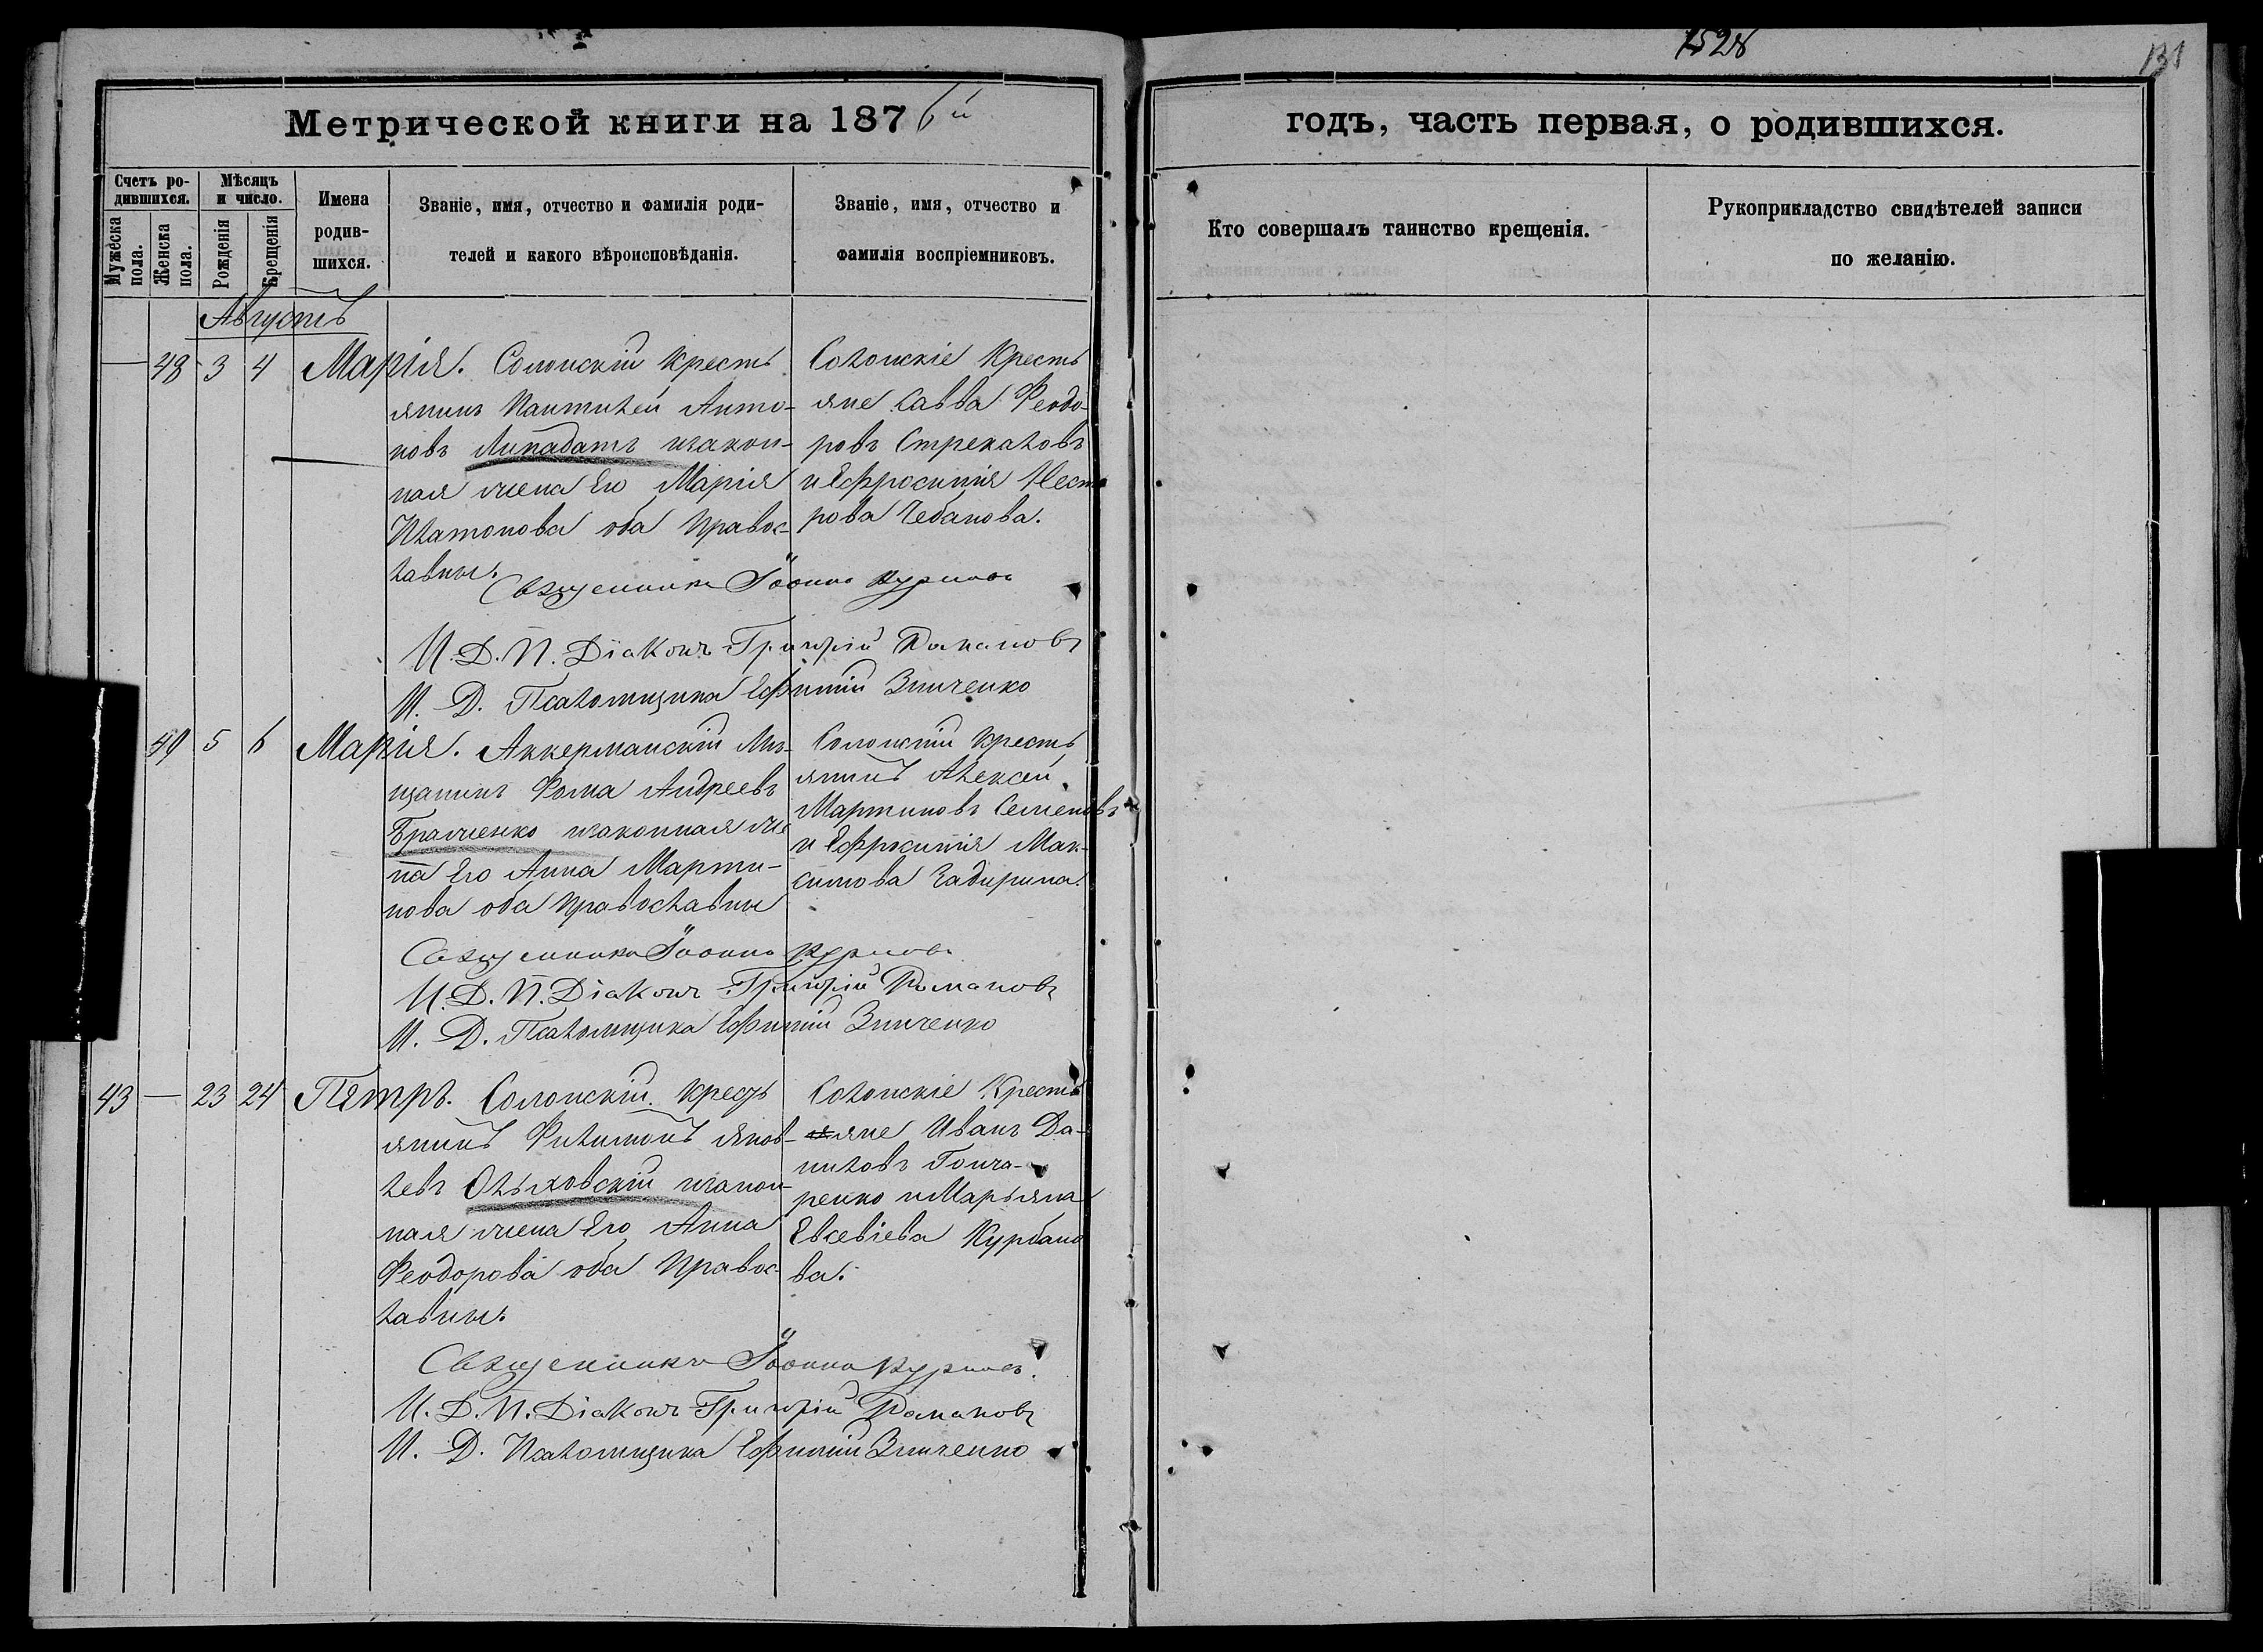 1528
131
Метрической книги на 1876й
годъ, часть первая, о родившихся.
Счетъ родившихся.
Мѣсяцъ и число.
Мужеска пола.
Женска пола.
Рожденія
Крещенія
Имена родившихся.
Званіе, имя, отчество и фамилія родителей и какого вѣроисповѣданія.
Званіе, имя, отчество и фамилія воспріемниковъ.
Кто совершалъ таинство крещенія.
Рукоприкладство свидѣтелей записи по желанію.
Августъ
— 48 3 4 Марія. Солонскій кресть
янинъ Пантилей Анто-
новъ Липадатъ изакон-
ная жена Его Марія
Платонова оба Правос-
лавны.
Солонскіе Кресть
яне Савва Феодо-
ровъ Стрекаловъ
и Ефросинія Нест
рова Чебанова.
Священникъ Іоаннъ
И. Д. П. Діаконъ Григорій Романовъ
И. Д. Псаломщика Ефимій Зинченко
49 5 6 Марія. Аккерманскій Мѣ-
щанинъ Фома Андреевъ
изаконная же
на Его Анна Марти-
нова оба православны
Солонскій кресть
янинъ Алексей
Мартиновъ Семеновъ
и Ефросинія Мак-
симова Гадирина.
Священникъ Іоаннъ
И. Д. П. Діаконъ Григорій Романовъ
И. Д. Псаломщика Ефимій Зинченко
43 — 23 24 Петръ. Солонскій кресть
янинъ Филимонъ Яков-
левъ Ольховскій изакон-
ная жена Его Анна
Феодорова оба Правос-
лавны.
Солонскіе Кресть
яне Иванъ Да-
ниловъ Гонча-
ренко и Марьяна
Евсевіева Курбано
ва.
Священникъ Іоаннъ
И. Д. П. Діаконъ Григорій Романовъ
И. Д. Псаломщика Ефимій Зинченко